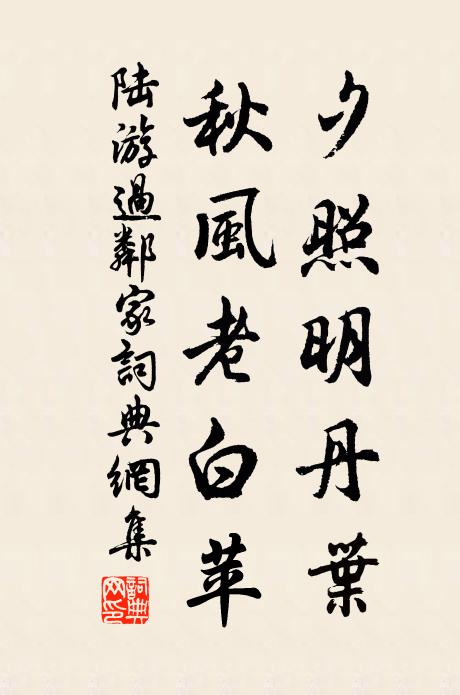 夕照明丹葉
秋風老白苹
陸游過鄰家詞典網集
詞典
网印